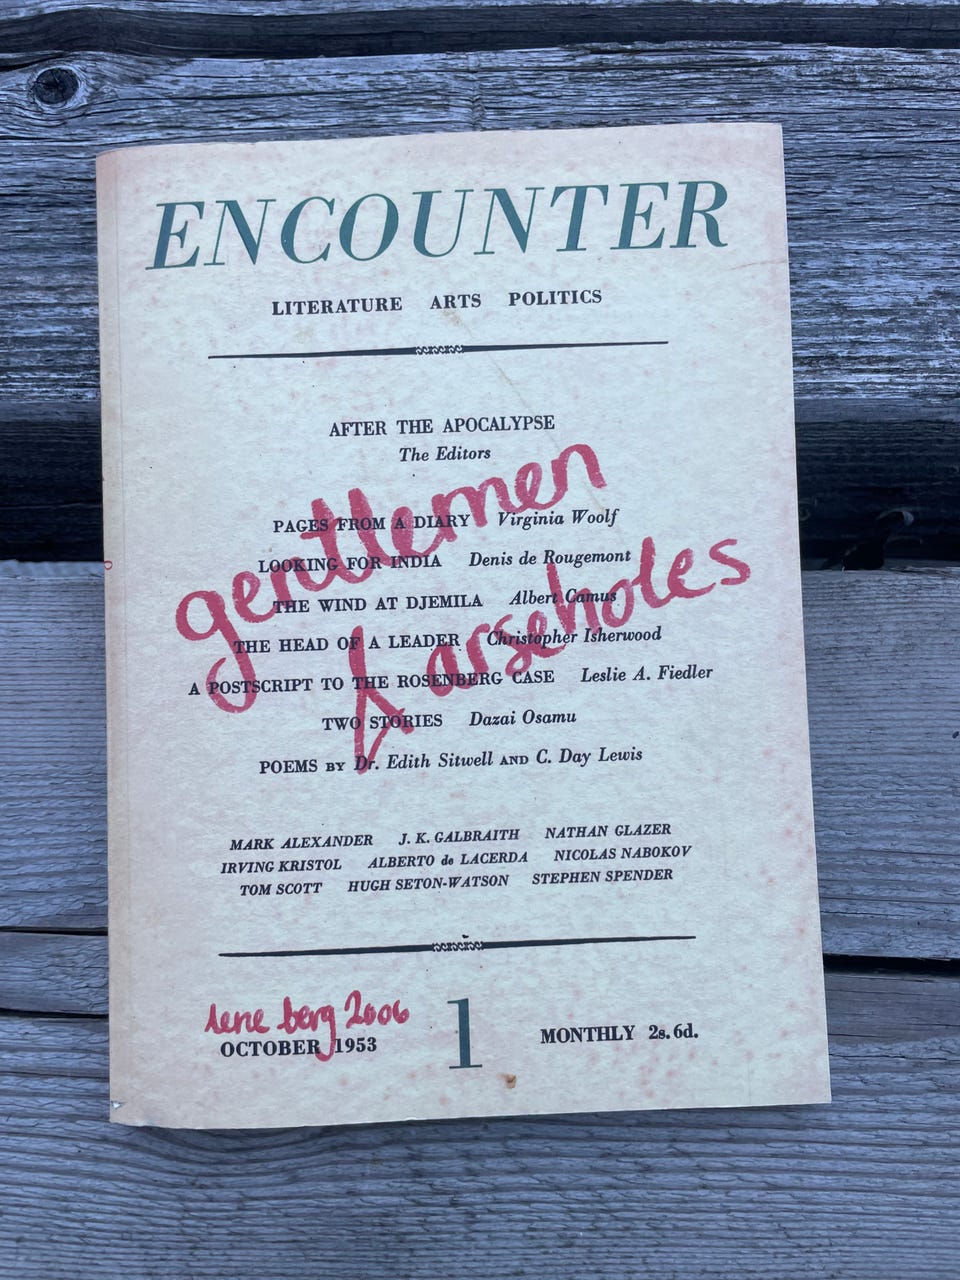 ENCOUNTER
LITERATURE ARTS POLITICS
AFTER THE APOCALYPSE
The Editors
gentlemen
& arseholes
PAGES FROM A DIARY Virginia Woolf
LOOKING FOR INDIA Denis de Rougemont
THE WIND AT DJEMILA Albert Camus
THE HEAD OF A LEADER Christopher Isherwood
A POSTSCRIPT TO THE ROSENBERG CASE Leslie A. Fiedler
TWO STORIES Dazai Osamu
POEMS BY Dr. Edith Sitwell AND C. Day Lewis
MARK ALEXANDER J. K. GALBRAITH NATHAN GLAZER
IRVING KRISTOL ALBERTO de LACERDA NICOLAS NABOKOV
TOM SCOTT HUGH SETON-WATSON STEPHEN SPENDER
lene berg 2006
OCTOBER 1953 1 MONTHLY 2s. 6d.